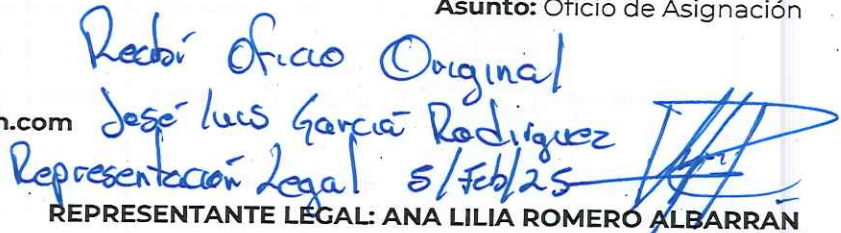 Asunto: Oficio de Asignación
Recibí Oficio Original
n.com José Luis García Rodríguez
Representación Legal 5/Feb/25
REPRESENTANTE LEGAL: ANA LILIA ROMERO ALBARRAN